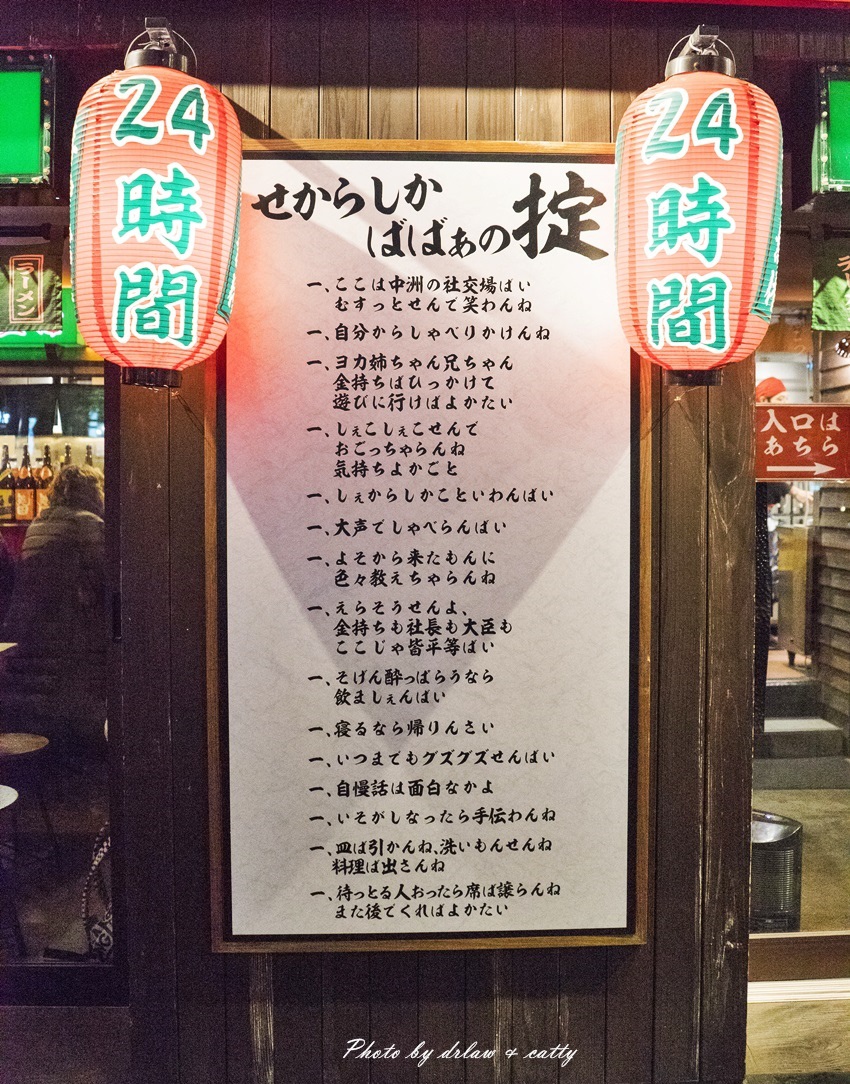 24時間
24時間
ラーメン
せからしか
ばばぁの掟
一、ここは中洲の社交場ばい
むすっとせんで笑わんね
一、自分からしゃべりかけんね
一、ヨカ姉ちゃん兄ちゃん
金持ちばひっかけて
遊びに行けばよかたい
一、しぇこしぇこせんで
おごっちゃらんね
気持ちよかごと
一、しぇからしかこといわんばい
一、大声でしゃべらんばい
一、よそから来たもんに
色々教えちゃらんね
一、えらそうせんよ、
金持ちも社長も大臣も
ここじゃ皆平等ばい
一、そげん酔っぱらうなら
飲ましぇんばい
一、寝るなら帰りんさい
一、いつまでもグズグズせんばい
一、自慢話は面白なかよ
一、いそがしなったら手伝わんね
一、皿ば引かんね、洗いもんせんね
料理ば出さんね
一、待っとる人おったら席ば譲らんね
また後でくればよかたい
入口は
あちら
Photo by drlaw & catty